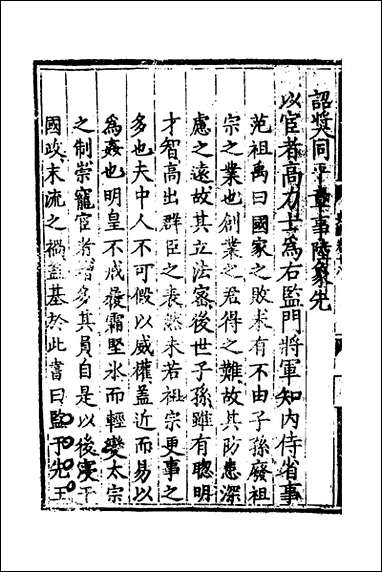 詔獎同平章事陸象先
以宦者高力士爲右監門將軍知内侍省事
范祖禹曰國家之敗未有不由子孫廢祖
宗之業也創業之君得之難故其防患深
慮之遠故其立法宻後世子孫雖有聰明
才智高出羣臣之表然未若祖宗更事之
多也夫中人不可假以威權盖近而易以
爲姦也明皇不戒履霜堅氷而輕變太宗
之制崇寵宦者增多其員自是以後寖干
國政末流之禍盖基於此書曰監于先王